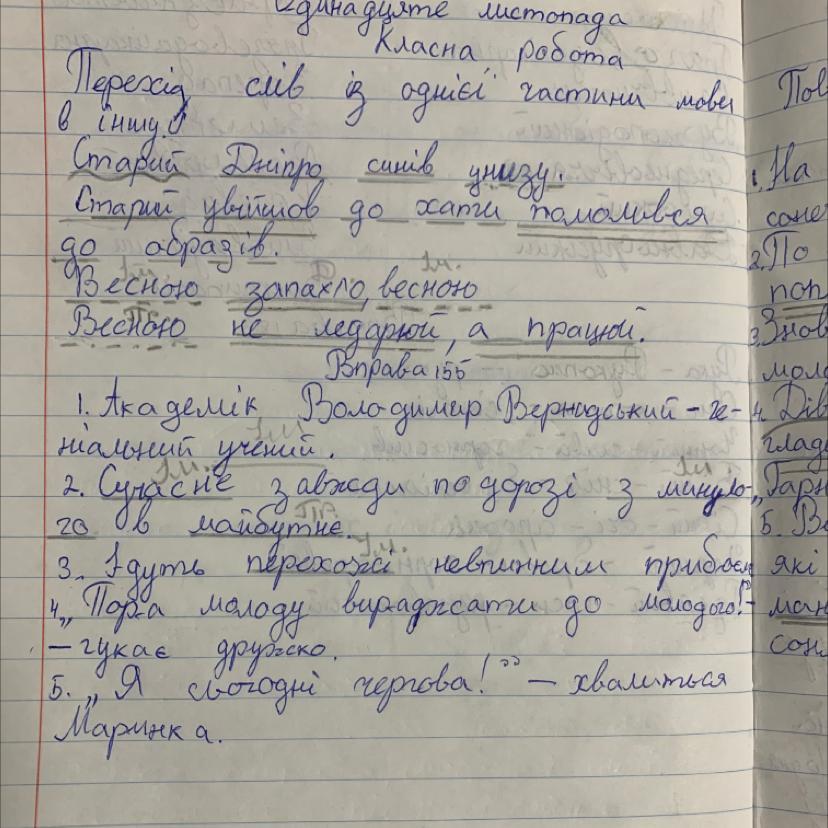 Одинадцяте листопада
Класна робота
Перехід слів із однієї частини мови
в іншу.
Старий Дніпро синів унизу.
Старий увійшов до хати помолився
до образів.
Ім. Ім.
Весною запахло, весною
Весною не ледарюй, а працюй.
Вправа 155
1. Академік Володимир Вернадський – ге-
ніальний учений.
Ім. Ім
2. Сучасне завжди по дорозі з минуло-
го в майбутнє.
Ім.
3. Ідуть перехожі невпинним прибоєм
4. „Пора молоду виражати до молодого!" –
– гукає дружко.
5. „Я сьогодні чергова!" – хвалиться
Маринка.
Пов
1. На
2. По
поп
3. Знов
моло
4. Дів
глад
„Гарн
5. Ве
які
ман